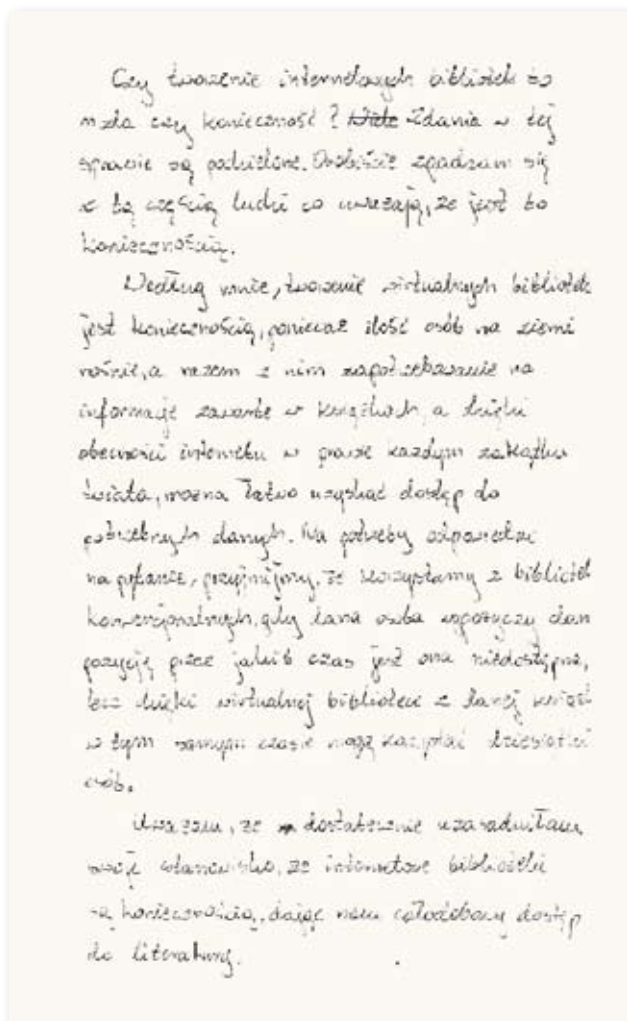 Czy tworzenie internetowych bibliotek to
moda czy konieczność? Zdania w tej
sprawie są podzielone. Osobiście zgadzam się
z tą częścią ludzi co uważają, że jest to
koniecznością.
Według mnie, tworzenie wirtualnych bibliotek
jest koniecznością, ponieważ ilość osób na ziemi
rośnie, a razem z nim zapotrzebowanie na
informacje zawarte w książkach, a dzięki
obecności internetu w prawie każdym zakątku
świata, można łatwo uzyskać dostęp do
potrzebnych danych. Na potrzeby odpowiedzi
na pytanie, przyjmijmy, że korzystamy z bibliotek
konwencjonalnych, gdy dana osoba wypożyczy dan
pozycję przez jakiś czas jest ona niedostępna,
lecz dzięki wirtualnej bibliotece z danej książk
w tym samym czasie mogą korzystać dziesiątki
osób.
Uważam, że dostatecznie uzasadniłam
swoje stanowisko, że internetowe biblioteki
są koniecznością, dając nam całodobowy dostęp
do literatury.